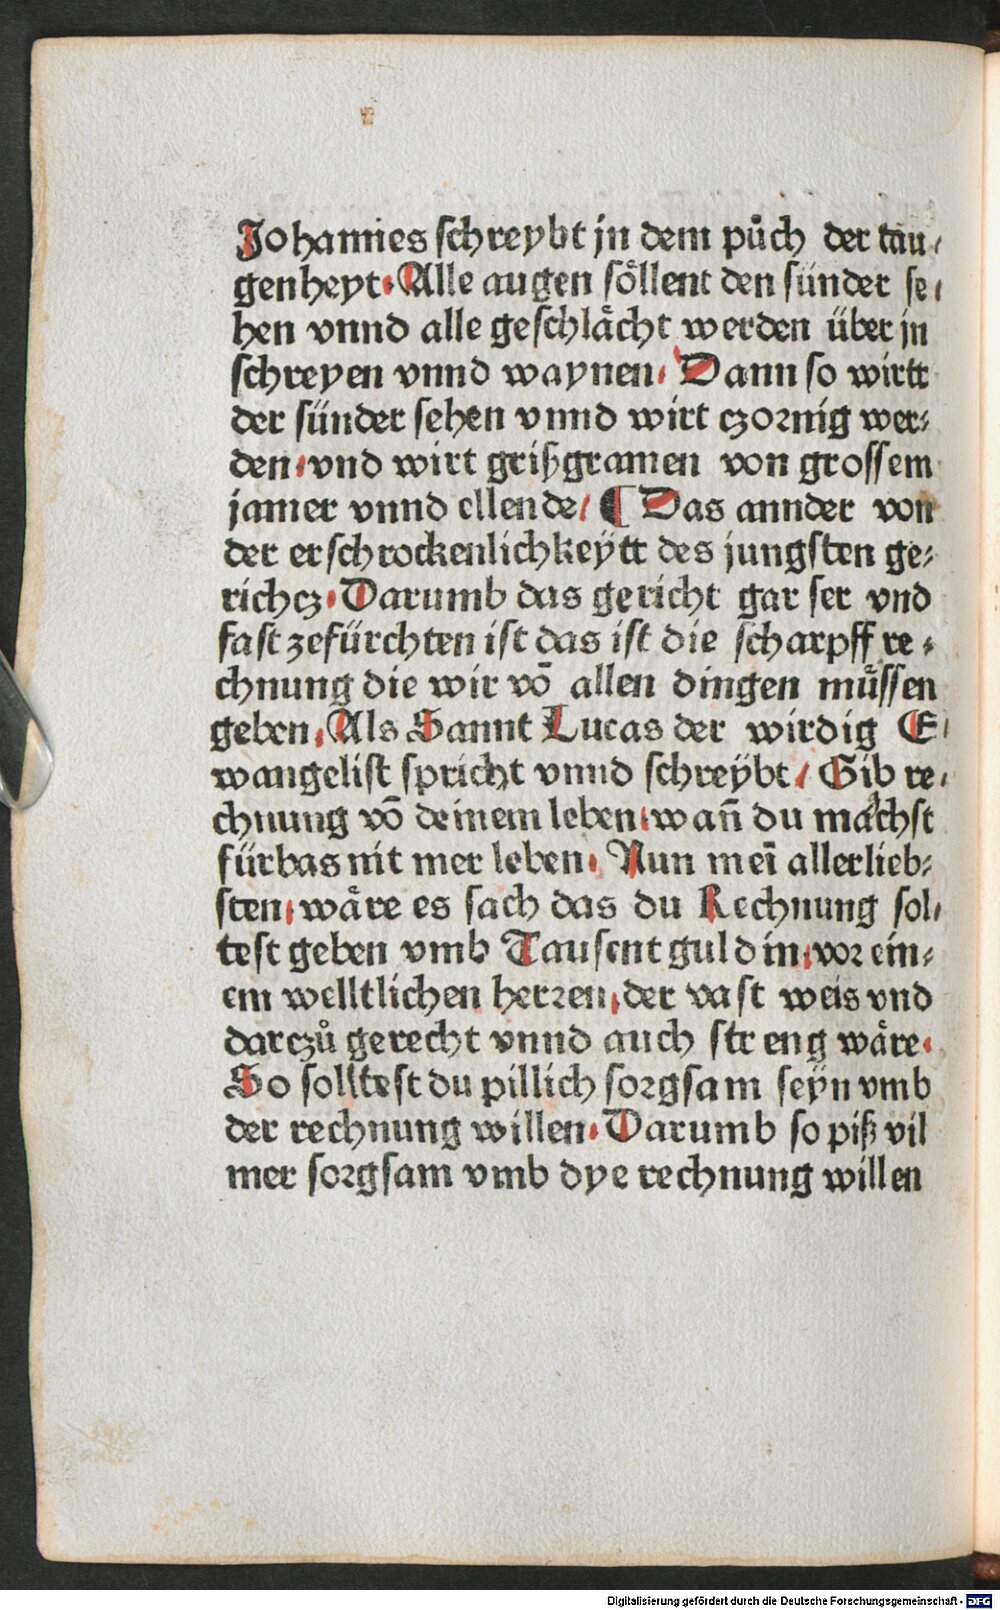 Johannes schreybt jn dem půch der tau⸗
genheyt. Alle augen söllent den sünder se⸗
hen vnnd alle geschlächt werden über jn
schreyen vnnd waynen. Dann so wirtt
der sünder sehen vnnd wirt czornig wer⸗
den. vnd wirt grißgramen von grossem
jamer vnnd ellende/ ¶ Das annder von
der erschrockenlichkeytt des jungsten ge⸗
richcz. Darumb das gericht gar ser vnd
fast zefürchten ist das ist die scharpff re⸗
chnung die wir vō allen dingen müssen
geben. Als Sannt Lucas der wirdig E⸗
wangelist spricht vnnd schreybt/ Gib re⸗
chnung vō deinem leben. wañ du mächst
fürbas nit mer leben. Nun meī allerlieb⸗
sten. wäre es sach das du Rechnung sol⸗
test geben vmb Tausent guldin. vor ein⸗
em welltlichen herren. der vast weis vnd
darczů gerecht vnnd auch streng wäre.
So solltest du pillich sorgsam seyn vmb
der rechnung willen. Darumb so piß vil
mer sorgsam vmb dye rechnung willen
Digitalisierung gefördert durch die Deutsche Forschungsgemeinschaft - DFG